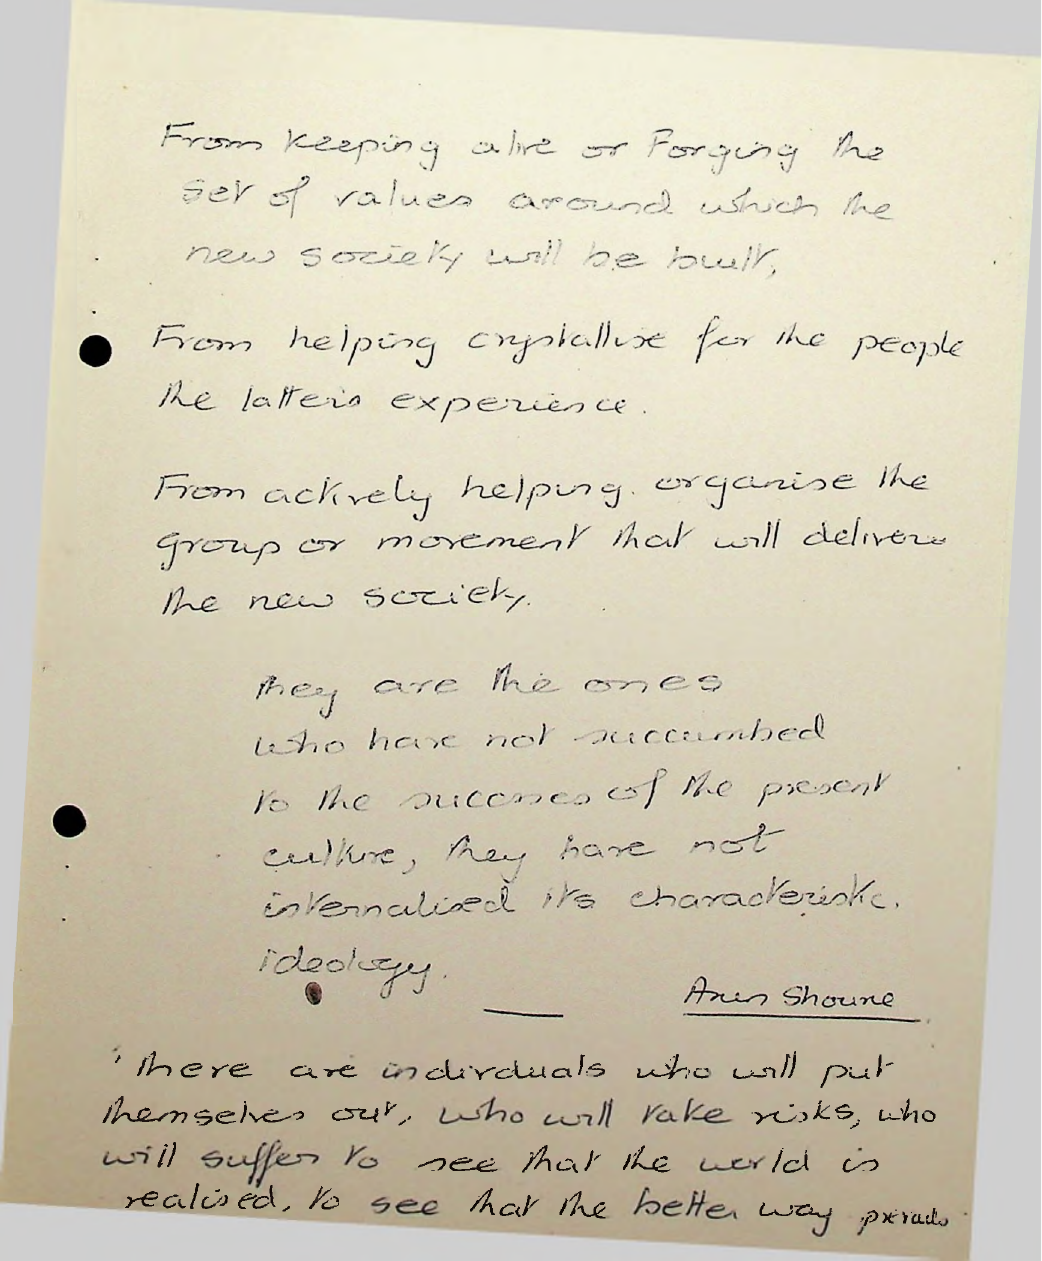 From keeping alive or Forging the
set of values around which the
new society will be built,
From helping crystallise for the people
the latter's experience.
From actively helping organise the
group or movement that will deliver
the new society.
they are the ones
who have not succumbed
to the successes of the present
culture, they have not
internalised its characteristic
ideology.
Arun Shourie
'there are individuals who will put
themselves out, who will take risks, who
will suffer to see that the world is
realised, to see that the better way prevails